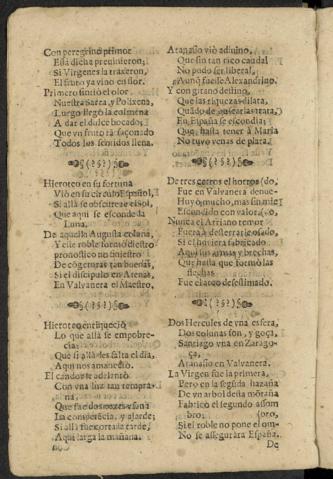 Con peregrino primor
Essa dicha previnieron;
Si Virgenes la traxeron,
El fruto ya vino en flor.
Primero sintió el olor
Nuestra Sarza, y Polixena,
Luego llegò la colmena
A dar el dulce bocado;
Que vn fruto tã saçonado
Todos los sentidos llena.
Hieroteo en su fortuna
Viò en su circulo Español,
Si allà se obscurece el Sol,
Que aqui se esconde la
Luna.
De aquella Augusta colana,
Y este roble formò diestro
pronostico no siniestro
De cògeturas tan buenas,
Si el discipulo en Atenas,
En Valvanera el Maestro.
Hieroteo
Lo que allà se empobre-
cia;
Que si allà des falta el dia,
Aqui nos amaneciò.
El candor
Con vna luz tan tempra-
na,
Que
In competẽcia, y alarde;
Si allà fue corta la tarde,
Aqui larga la mañana.
Atanasio viò adivino,
Que sin tan rico caudal
No pudo ser liberal,
Aunq̃ fuesse Alexandrino.
Y con gitano destino,
Que las riquezas dilata,
Quãdo de
En España se escondia;
Que hasta tener à Maria
No tuvo venas de plata.
De tres
Fue en Valvanera denue-
Huyò mucho, mas sin mie
Escondido con valor. (do,
Nunca el Arriano temor
Fuera à desterrar le osado
Si el huviera fabricado
Aqui sus armas y brechas,
Que hasta que formò las
flechas
Fue el arco desestimado.
Dos Hercules de vna esfera,
Dos colunas son, y goça,
Santiago vna en Zarago-
ça,
Atanasio en Valvanera.
La Virgen fue la primera,
Pero en la segũda hazaña
De vn arbol de la mõtaña
Fabricò el segundo assom
bro; (bro,
Si el roble no pone el om-
No se asseguràra España.
De